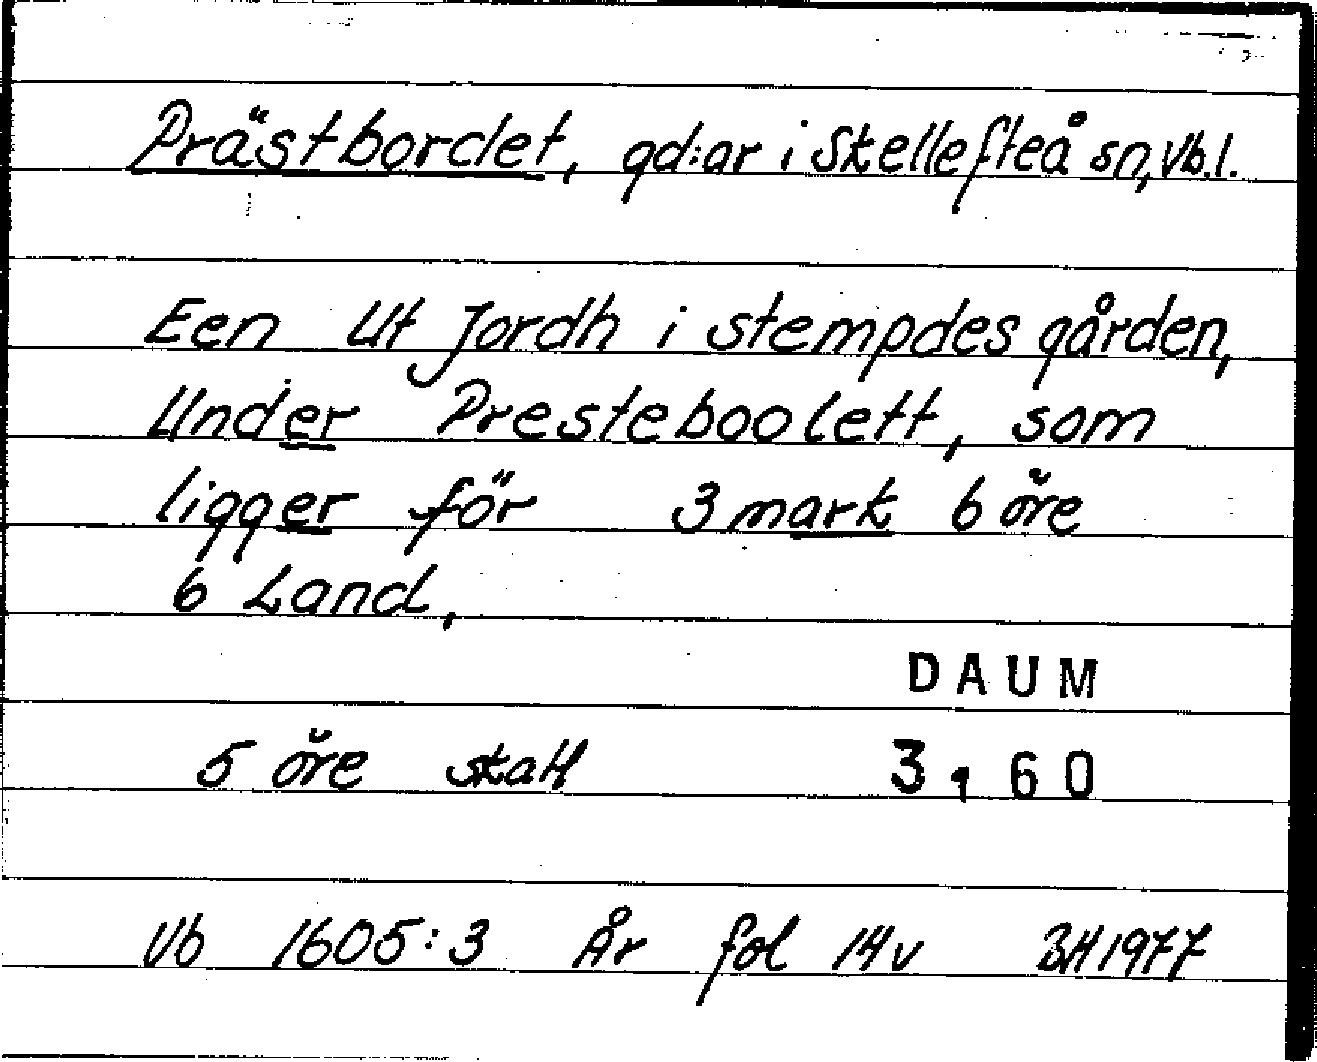 Prästbordet, gd:ar i Skellefteå sn, Vb.l.
Een Ut Jordh i stempdes gården,
Under Presteboolett, som
ligger för 3 mark 6 öre
6 Land,
DAUM
5 öre skatt 3,60
Vb 1605:3 År fol 14v BH 1977